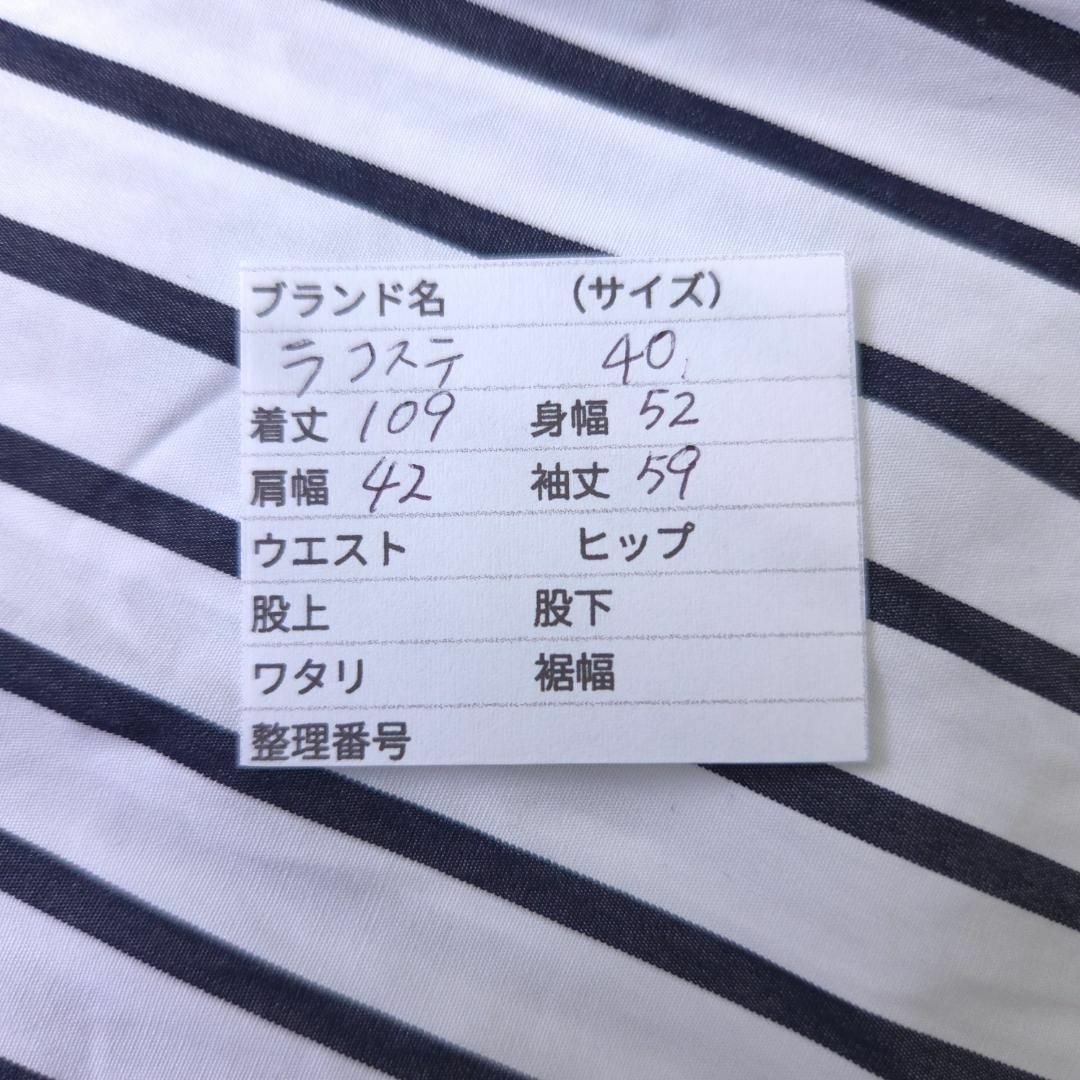 ブランド名 （サイズ）
ラコステ 40.
着丈 109 身幅 52
肩幅 42 袖丈 59
ウエスト ヒップ
股上 股下
ワタリ 裾幅
整理番号